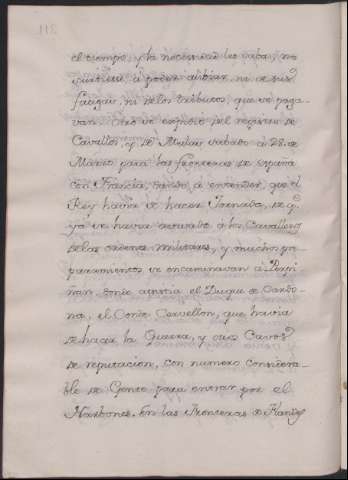 el tiempo, y la necesidad les daba, no
a poder aliviar, ni de sus
fatigas, ni de los tributos, que se paga-
van. se expidio del registro de
Cavallos, y de Mulas sabado á 28. de
Marzo para las fronteras de España
con Francia, dando á entender, que el
Rey havia de hacer Jornada, de q.
ya se havia avisado á los Cavalleros
de las ordenes militares, y muchos
se encaminavan á Perpi-
ñan, donde asistia el Duque de Cardo-
na, el Conde Cervellon, que havia
de hacer la Guerra, y otros Cavos
de reputacion, con numero considera-
ble de Gente para entrar por el
Narbones. En las Fronteras de Flandes